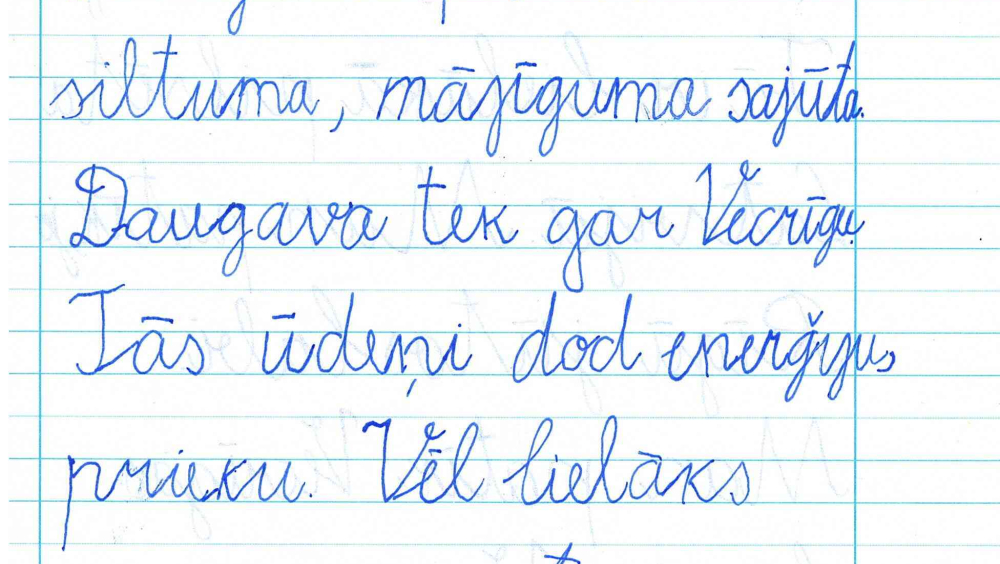 siltuma, mājīguma sajūta.
Daugava tek gar Vecrīgu.
Tās ūdeņi dod enerģiju,
prieku. Vēl lielāks